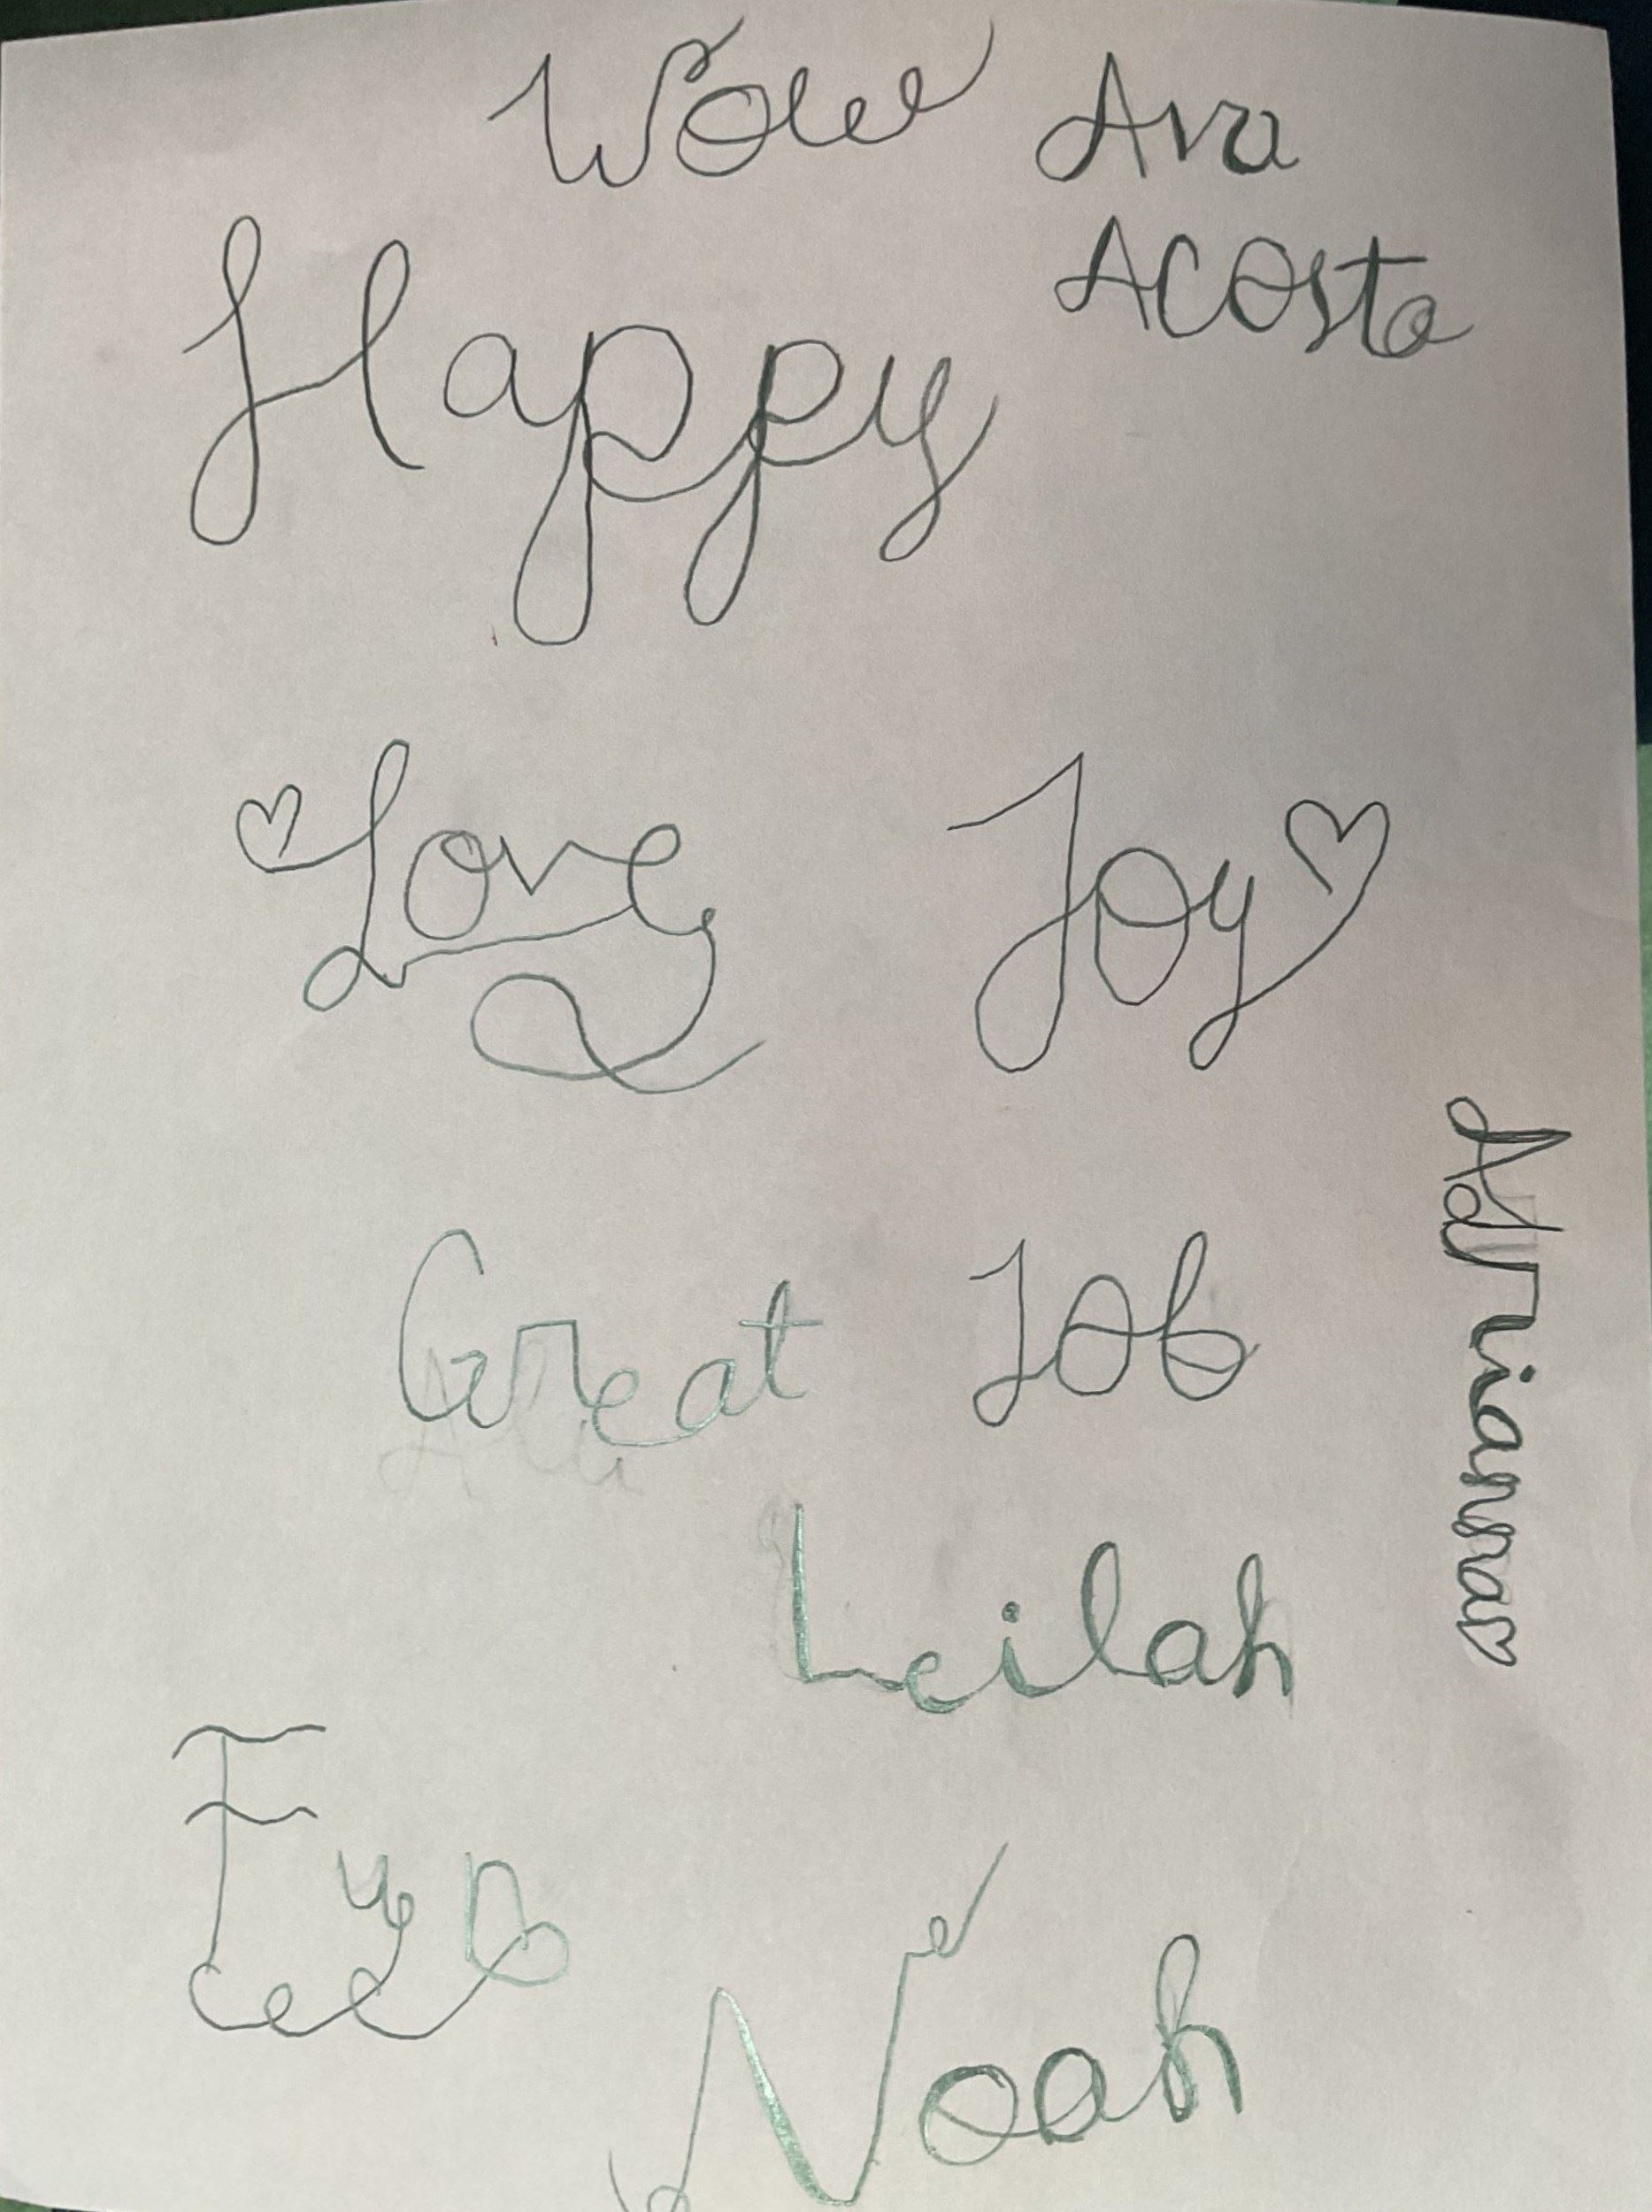 Wow Ava
Acosta
Happy
Love Joy
Great Job
Adrianna
Leilah
Fun
Noah